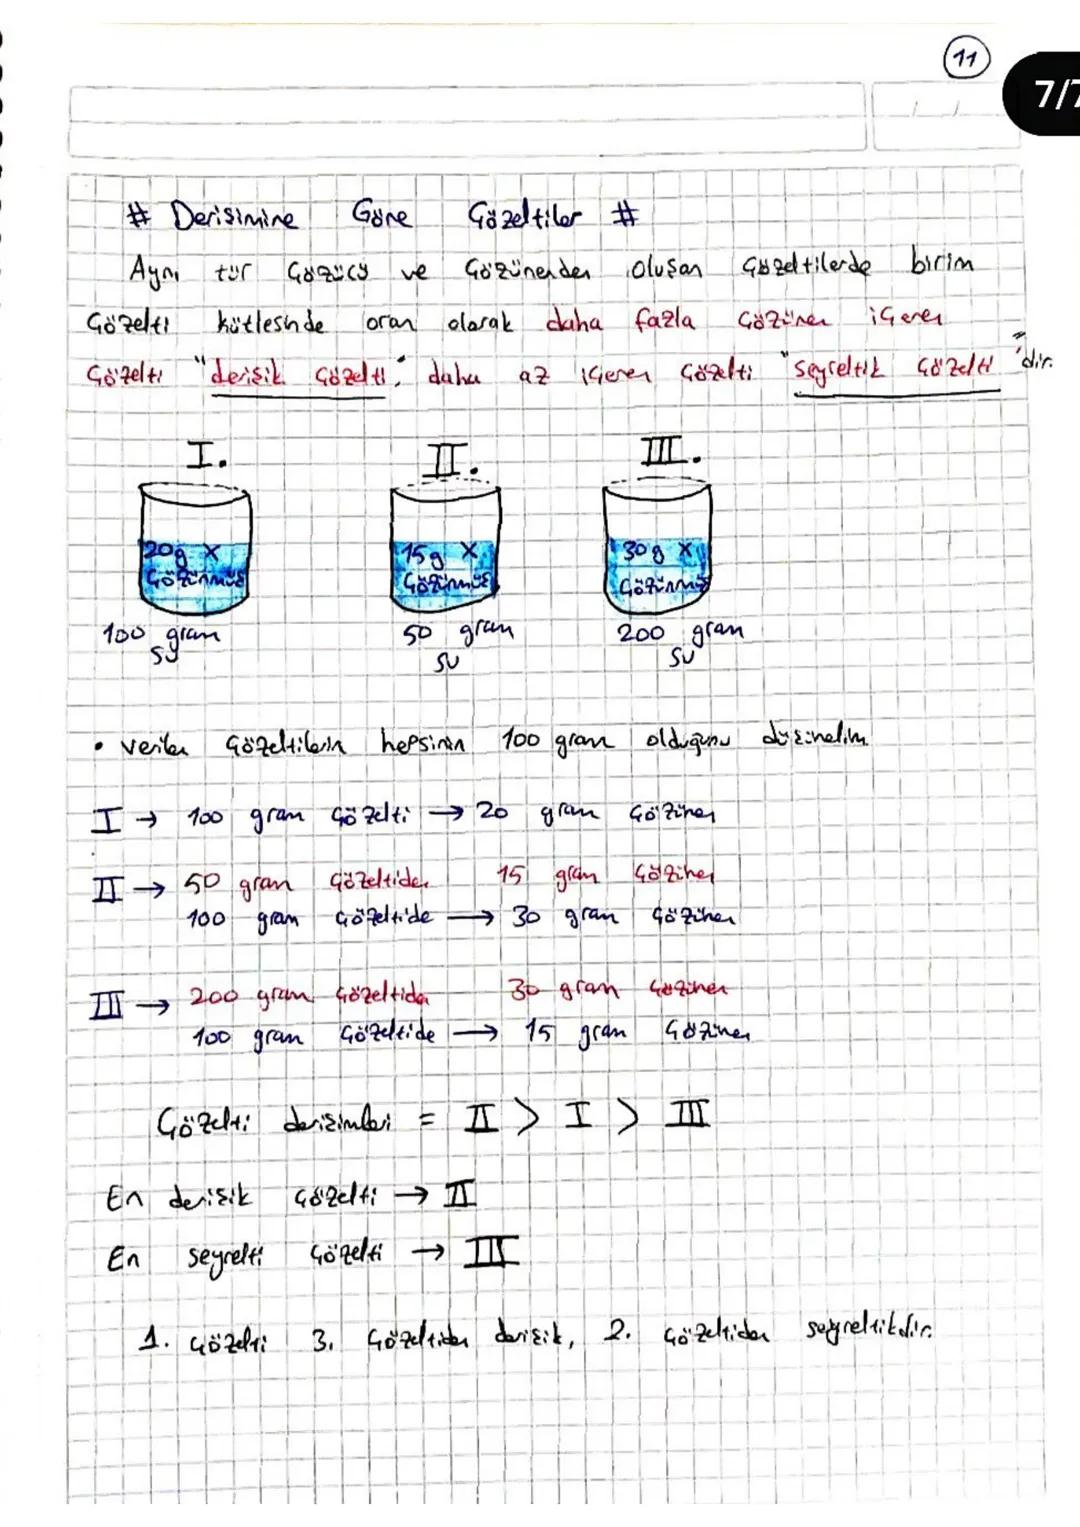 11
7/7
# Derişimine Göre Çözeltiler #
Aynı tür çözücü ve çözünenden oluşan çözeltilerde birim
çözelti kütlesinde oran olarak daha fazla çözünen içeren
çözelti "derişik çözelti", daha az içeren çözelti "seyreltik çözelti"dir.
I. II. III.
20g X 15g X 30g X
çözünmüş çözünmüş çözünmüş
100 gram 50 gram 200 gram
su su su
• verilen çözeltilerin hepsinin 100 gram olduğunu düşünelim.
I → 100 gram çözelti → 20 gram çözünen
II → 50 gram çözeltide 15 gram çözünen
100 gram çözeltide → 30 gram çözünen
III → 200 gram çözeltide 30 gram çözünen
100 gram çözeltide → 15 gram çözünen
Çözelti derişimleri = II > I > III
En derişik çözelti → II
En seyrelti çözelti → III
1. çözelti 3. çözeltiden derişik, 2. çözeltiden seyreltiktir.